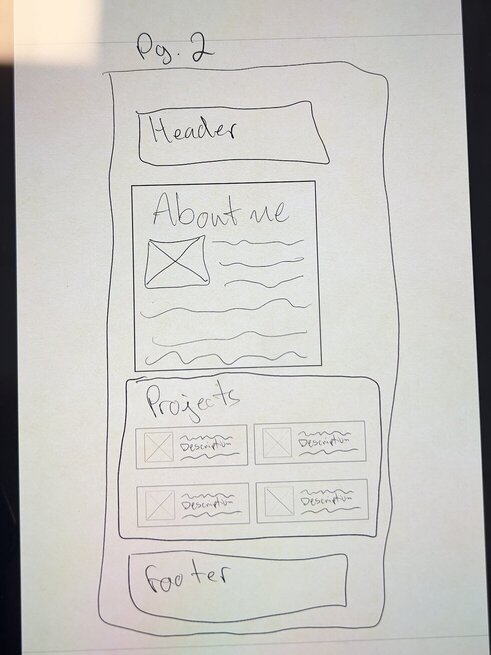 Pg. 2
Header
About me
Projects
Description
Description
Description
Description
Footer